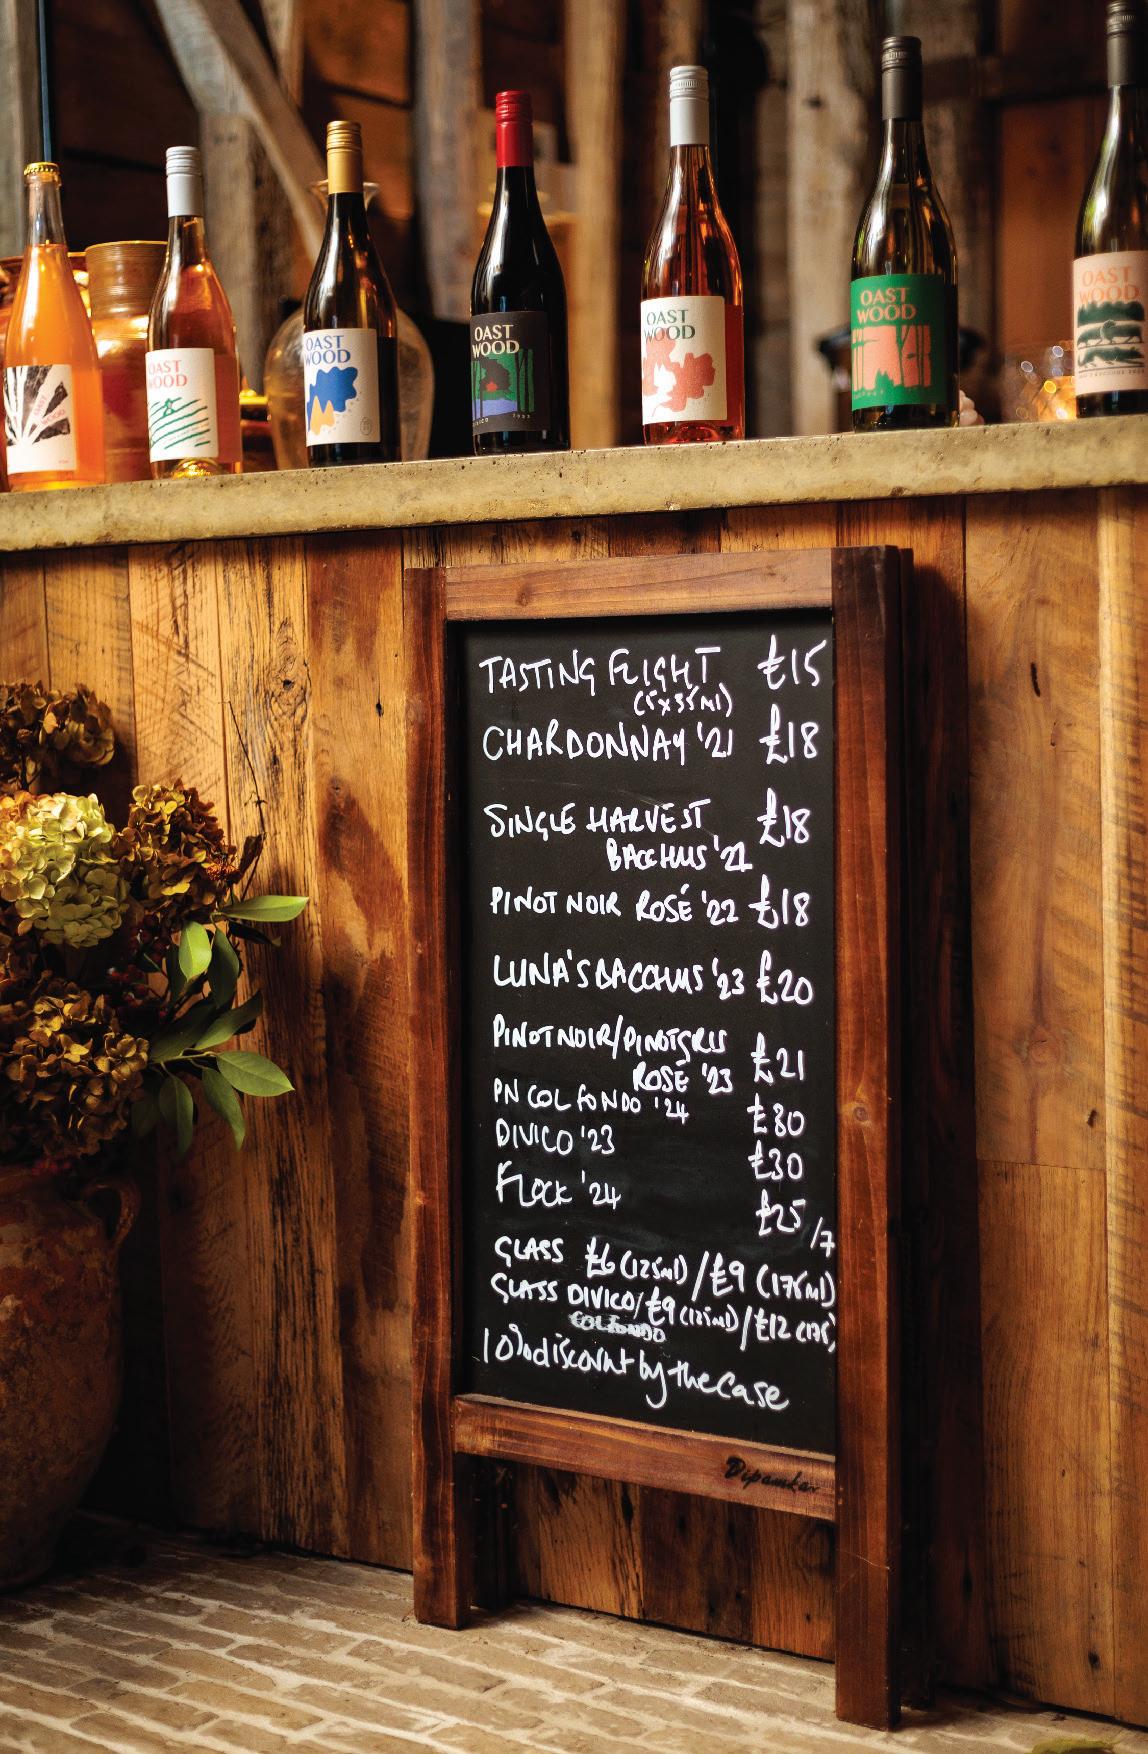 OAST WOOD
OAST WOOD
OAST WOOD
OAST WOOD
OAST WOOD
OAST WOOD
TASTING FLIGHT £15
(5x35ml)
CHARDONNAY '21 £18
SINGLE HARVEST £18
BACCHUS '21
PINOT NOIR ROSÉ '22 £18
LUNA'S BACCHUS '23 £20
PINOT NOIR/PINOT GRIS
ROSÉ '23 £21
PN COL FONDO '24 £30
DIVICO '23 £30
FLOCK '24 £25/7
GLASS £6 (125ml) / £9 (175ml)
GLASS DIVICO/ £9 (125ml) / £12 (175)
COLFONDO
10% discount by the case
Dipamkar